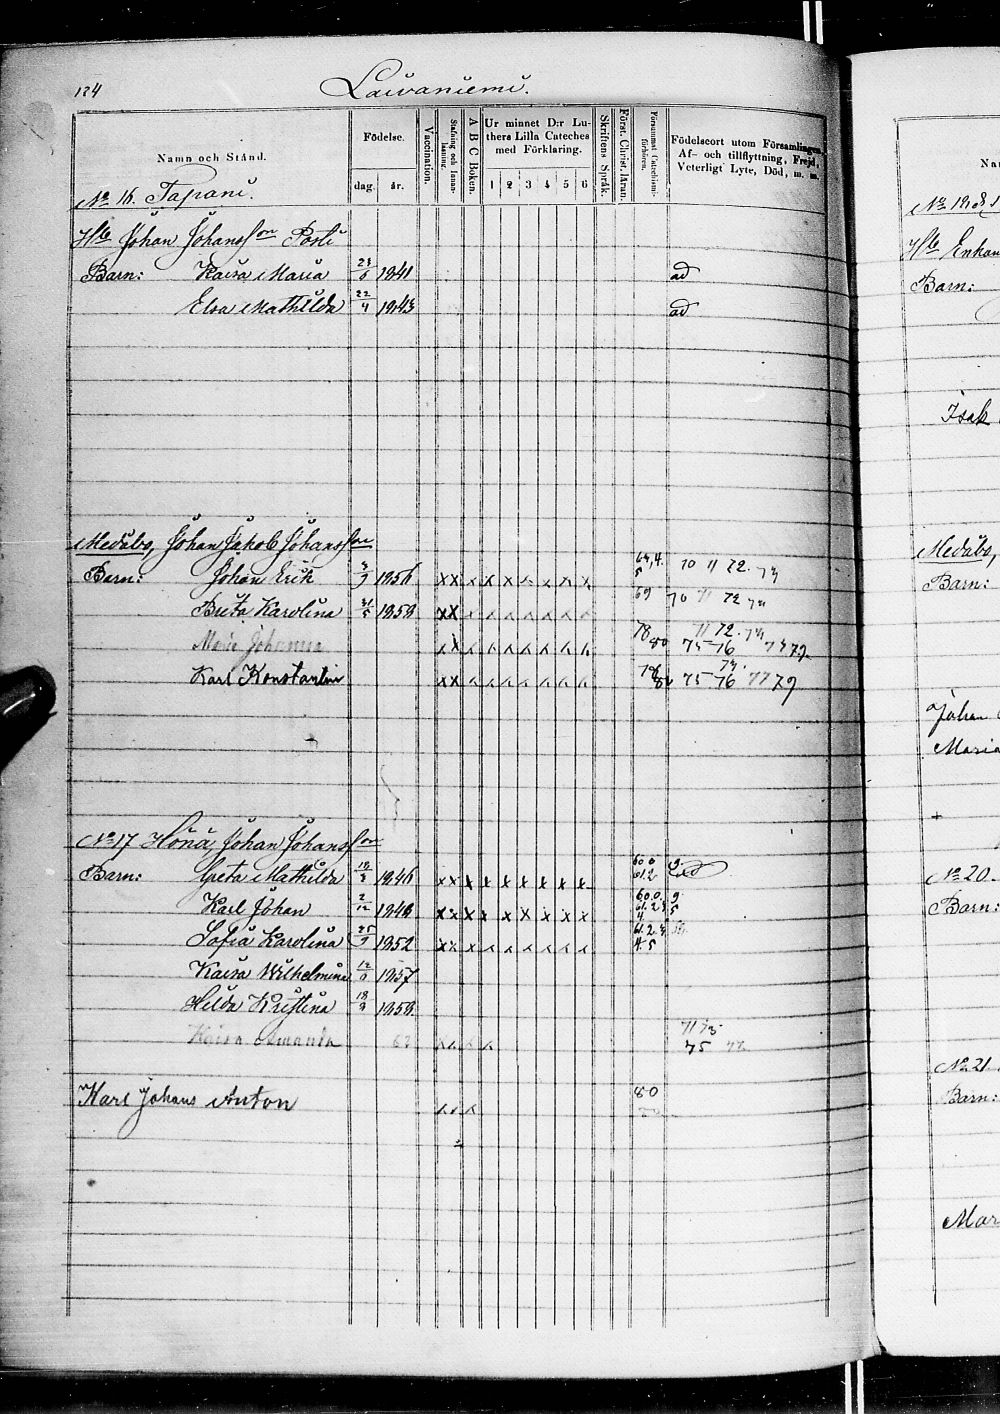 124
Laivaniemi.
Namn och Stånd.
Födelse.
dag. år.
Vaccination.
Stafning och Innanläsning.
A B C Boken.
Ur minnet D:r Luthers Lilla Cateches med Förklaring.
1 2 3 4 5 6
Skriftens Språk.
Först. Christ. läran.
Försummat Catechismiförhören.
Födelseort utom Församlingen, Af- och tillflyttning, Frejd, Veterligt Lyte, Död, m. m.
No 16. Tapani.
Hb Johan Johansson Posti
Barn: Kaisa Maria 1841 ad
Elsa Mathilda 22/4 1843 ad
Medåbo, Johan Jakob Johansson
Barn: Johan Erik 3/9 1856 x x x x x x x x x 70 71 72. 73
Breta Karolina 31/5 1859 x x x x x x x x x 69 70 71 72 73
Maria Johanna x x x x x x x x x 78 80 71 72. 73 75 76 77 79.
Karl Konstantin x x x x x x x x x 78 75 76 77 79
No 17 Hönä, Johan Johansson
Barn: Greta Mathilda 1846 x x x x x x x x x
Karl Johan 2/12 1848 x x x x x x x x x
Sofia Karolina 25/9 1852 x x x x x x x x x
Kaisa Wilhelmina 1857
Hilda Kristina 1859
Kaisa Amanda x x x x 71 73 75
Karl Johans Anton x x x 80
Nan
Hb Enkan
Barn:
Isak
Medåbo,
Barn:
Johan
Maria
No 20.
Barn:
No 21.
Barn:
Mar